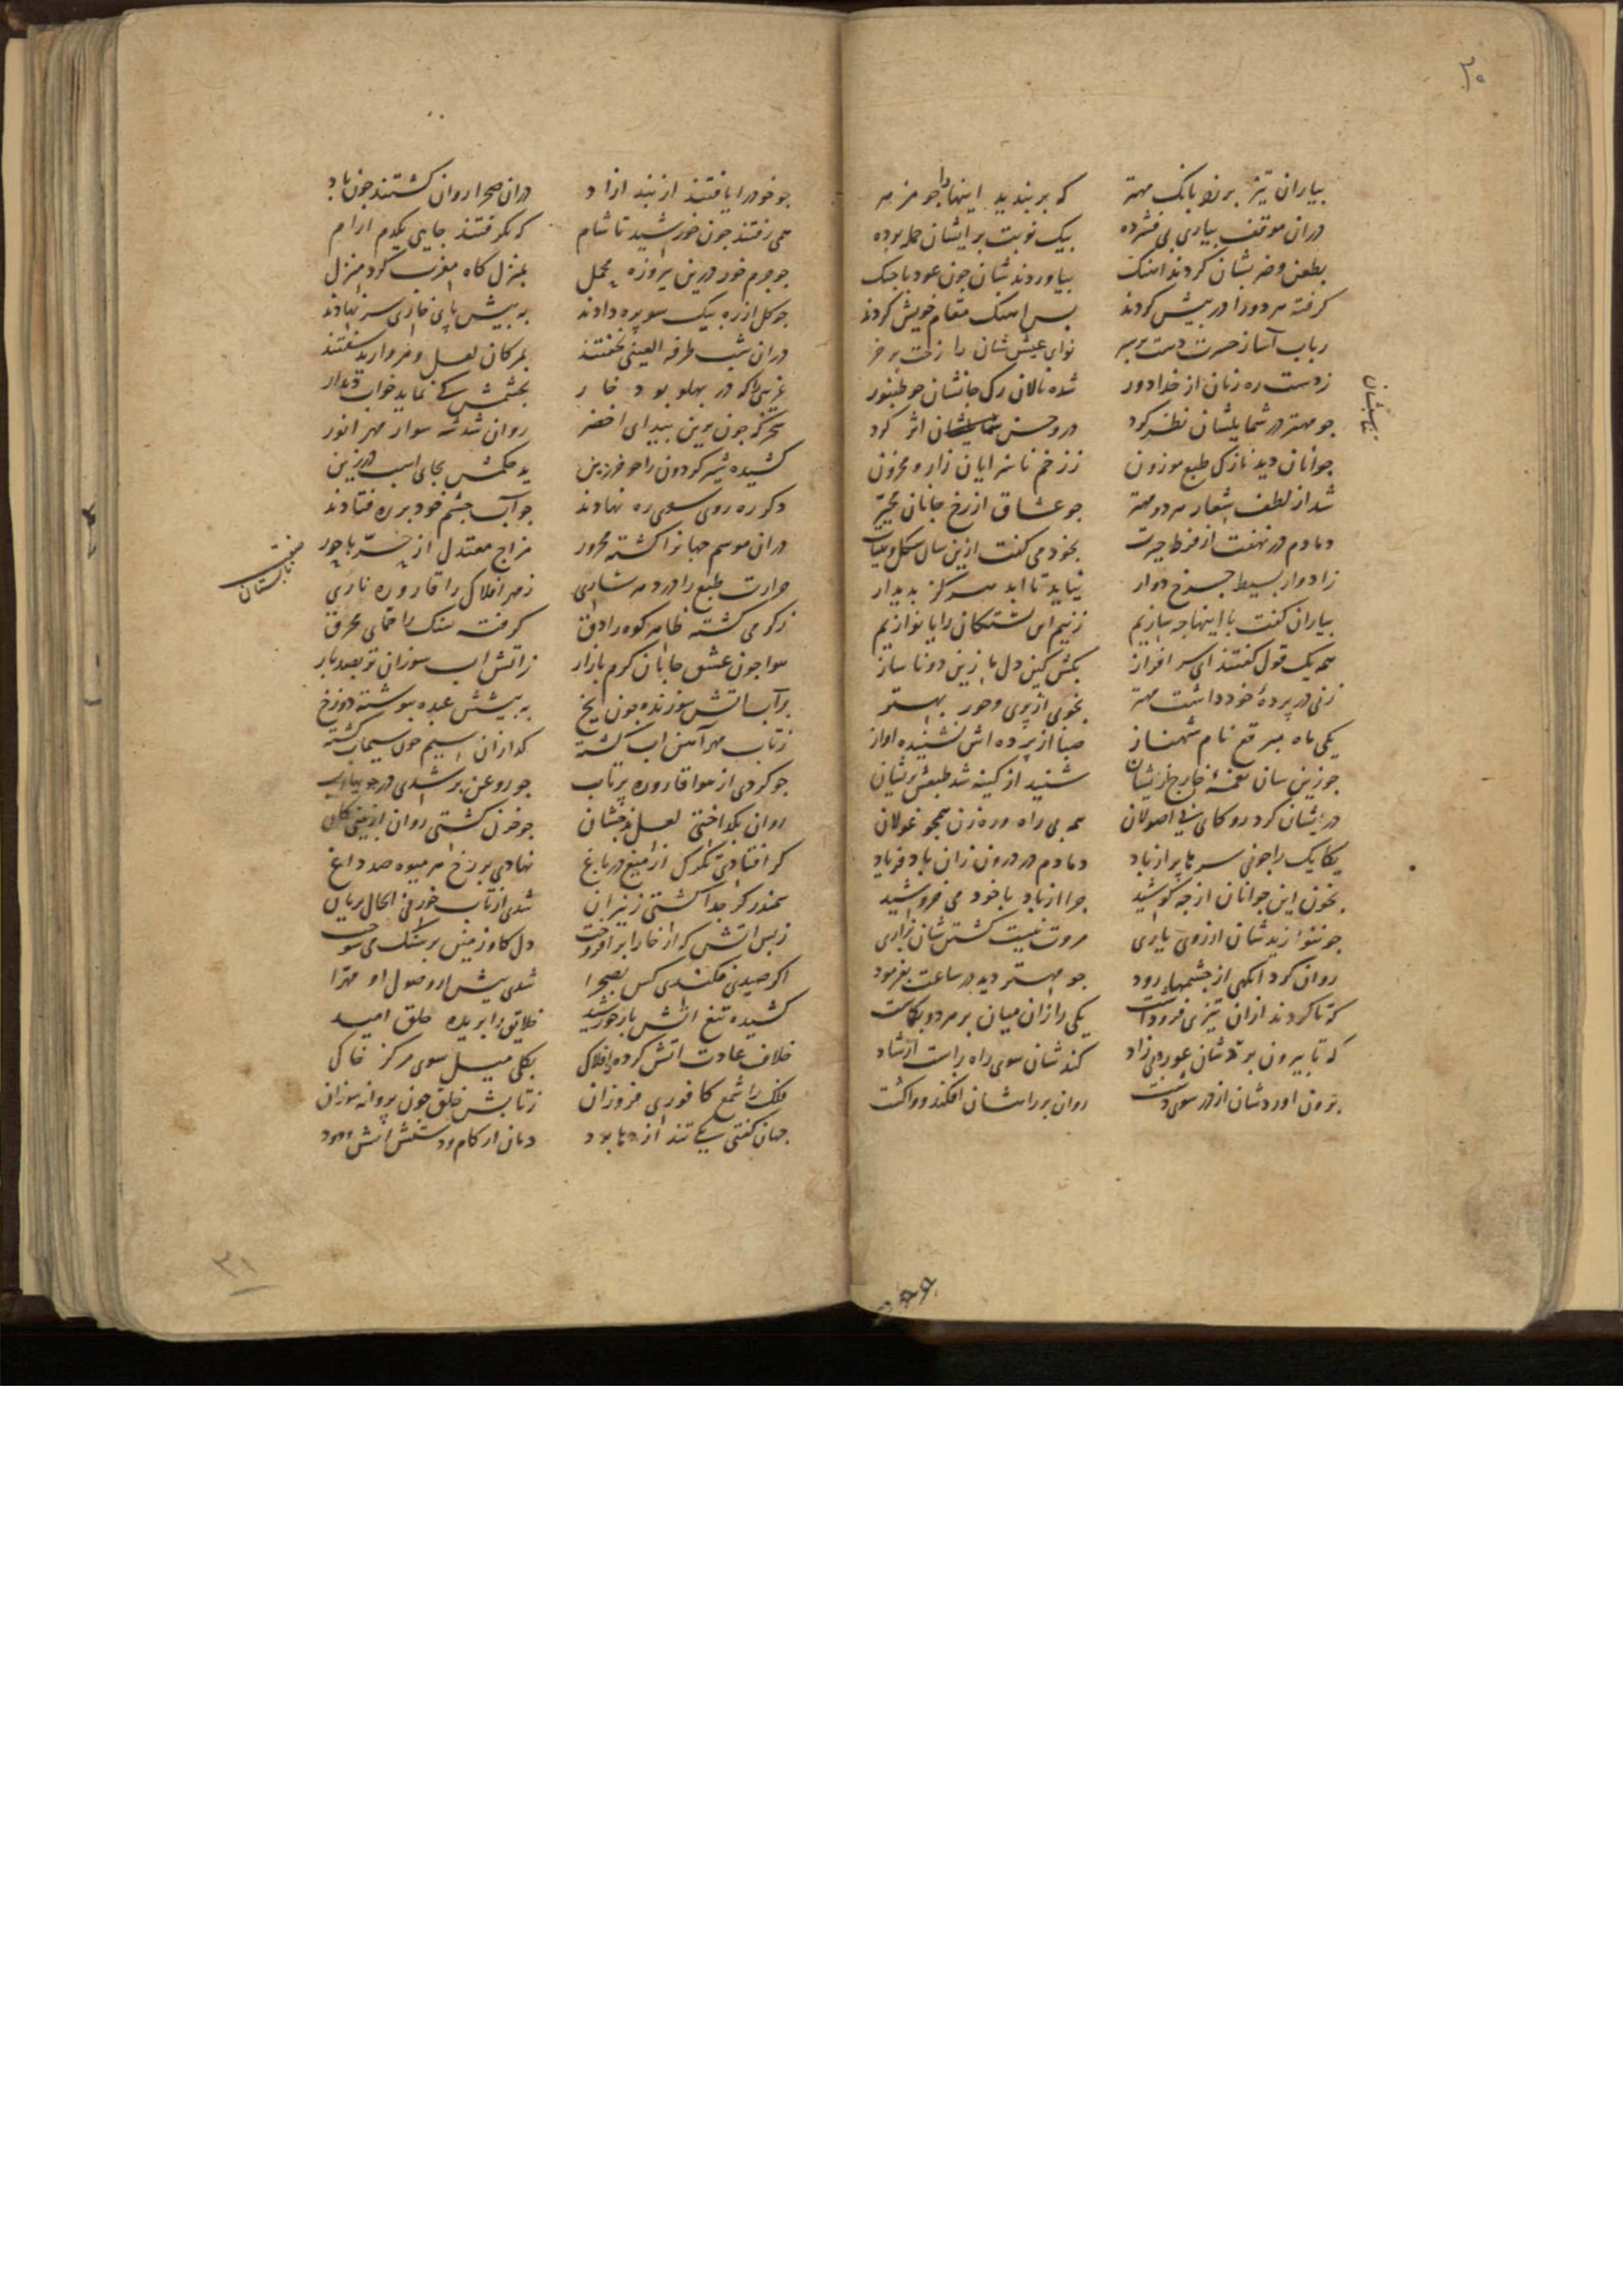 ۳۰
بیاران تیز برزد بانک مهتر
که بربندید اینهارا جو مزمر
دران موقف بیاری پی فشرده
بیک نوبت بر ایشان حمله بوده
بطعن وضربشان کردند اهنک
بیاوردندشان جون عود باجنک
کرفته هر دورا در پیش کردند
پس اهنک مقام خویش کردند
رباب آساز حسرت دست بر سر
نوای عیش شان را زخت بر خر
زدست ره زنان از خدا دور
شده نالان رک جانشان جو طنبور
جو مهتر در شمایلشان نظر کرد
درو حسن شمایلشان اثر کرد
جوانان دید نازک طبع موزون
ززخم ناسزایان زار و محزون
شد از لطف شعار هر دو مهتر
جو عشاق از رخ جانان محیر
دمادم در نهفت از فرط حیرت
بخود می کفت ازین سان شکل و هیات
ز ادوار بسیط جرخ دوار
نیاید تا ابد هرکز بدیدار
بیاران کفت با اینها جه سازیم
زنیم این کشتکان را یا نوازیم
همه یک قول کفتند ای سر افراز
بکش کین دل با زین دونا ساز
زنی در پردهٔ خود داشت مهتر
بخوبی از پری وحور بهتر
یکی ماه مبرقع نام شهناز
صبا از پرده اش نشنیده اواز
جو زین سان نغمهٔ خارج زایشان
شنید از کینه شد طبعش پریشان
در ایشان کرد رو کای بی اصولان
همه بی راه وره زن همجو غولان
یکایک را جو نی سر تا پر از باد
دمادم در درون زان باد فریاد
بخون این جوانان از جه کوشید
جرا از باد باخود می خروشید
جو ننوازیدشان از روی یاری
مروت نیست کشتن شان بزاری
روان کرد انکهی از جشمها رود
جو مهتر دید در ساعت بفرمود
که تا کردند ازان تیزی فروداشت
یکی را زان میان بر هر دو بکماشت
که تا بیرون برد شان عور وبی زاد
کند شان سوی راه راست ارشاد
برون اوردشان از در سوی دشت
روان بر راهشان افکند و واکشت
جو خودرا یافتند از بند ازاد
دران صحرا روان کشتند جون باد
همی رفتند جون خورشید تا شام
که نکرفتند جایی یکدم ارام
جو جرم خور درین پیروزه محمل
بمنزل کاه مغرب کرد منزل
جو کل از ره بیک سو پره دادند
به پیش پای خاری سر نهادند
دران شب طرفة العینی نخفتند
بمژکان لعل و مرواریدسفتند
غریبی را که در بهلو بود خار
بجشمش کی نماید خواب دیدار
سحرکه جون برین بیدای اخضر
روان شد شه سوار مهر انور
کشیده شیر کردون را جو فرزین
ید حکمش بجای اسب در زین
دکر ره روی سوی ره نهادند
جو آب جشم خود بر ره فتادند
صفت تابستان
دران موسم جهانرا کشته محرور
مزاج معتدل از حرّ باحور
حرارت طبع را در ده شاری
زمهر افلاک را قاروره ناری
زکرمی کشته ظاهر کوه را دق
کرفته سنک را حمّای محرق
هوا جون عشق جانان کرم بازار
زاتش اب سوزان تر بصد بار
براب اتش سوزنده جون یخ
به پیشش عبده بنوشته دوزخ
زتاب مهر آهن اب کشته
کدازان سیم جون سیماب کشته
جو کردی از هوا قاروره پرتاب
جو روغن بر شدی در جو بیاراب
روان بکداختی لعل بدخشان
جو خون کشتی روان از بینی کان
کر افتادی تکرک از میغ در باغ
نهادی بر رخ هر میوه صد داغ
سمندر کر جدا کشتی زنیران
شدی از تاب خور فی الحال بریان
زبس اتش که از خارا بر افروخت
دل کاو زمین بر سنک می سوخت
اکر صیدی فکندی کس بصحرا
شدی پیش از وصول او مهرا
کشیده تیغ اتش بار خورشید
خلایق را بریده حلق امید
خلاف عادت اتش کرده ز افلاک
بکلی میل سوی مرکز خاکی
فلک را شمع کافوری فروزان
زتابش خلق جون پروانه سوزان
جهان کفتی یکی تند اژدها بود
دمان از کام ودر شش اتش و دود
۳۱